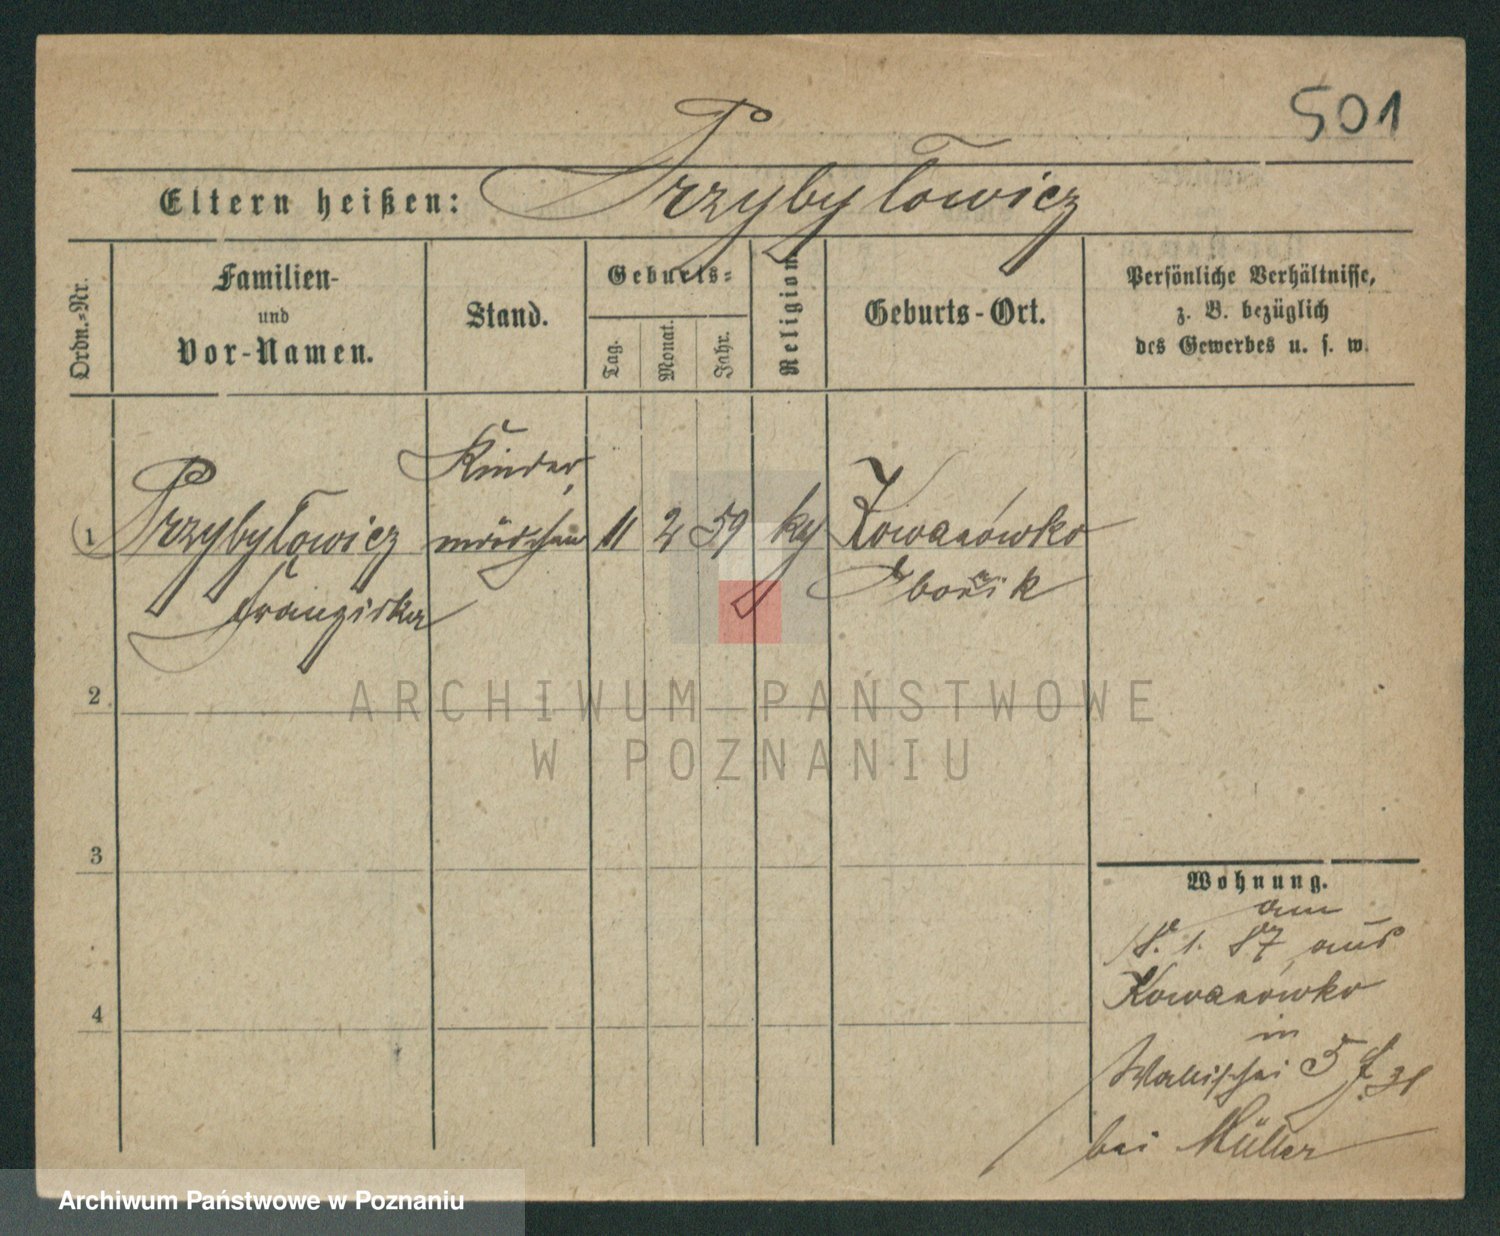 501
Eltern heißen: Przybyłowicz
Ordn.-Nr.
Familien-
und
Vor-Namen.
Stand.
Geburts-
Tag.
Monat.
Jahr.
Religion
Geburts-Ort.
Persönliche Verhältnisse,
z. B. bezüglich
des Gewerbes u. s. w.
Kinder
1 Przybyłowicz mädchen 11 2 59 Kowanówko
Franziska
2
ARCHIWUM PAŃSTWOWE
W POZNANIU
3
Wohnung.
am
8. 1. 87 aus
Kowanówko
4
in
Wallischei 5
bei Müller
Archiwum Państwowe w Poznaniu